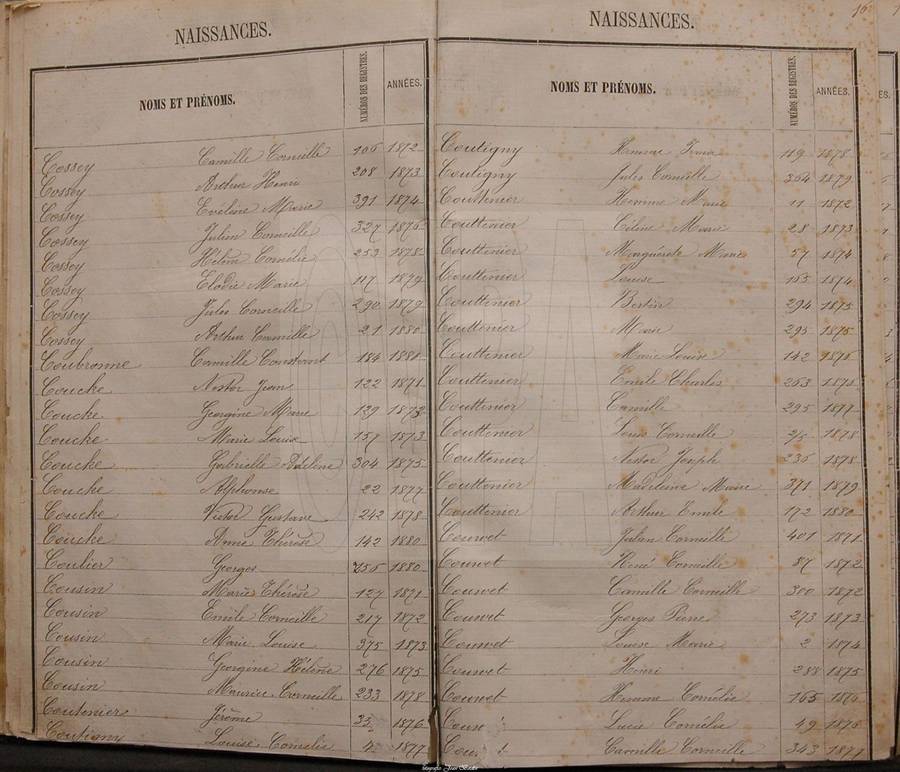 NAISSANCES.
NOMS ET PRÉNOMS. NUMÉROS DES REGISTRES. ANNÉES.
Cossey Camille Corneille 106 1872
Cossey Arthur Henri 208 1873
Cossey Evéline Marie 391 1874
Cossey Julien Corneille 327 1876
Cossey Hélène Cornélie 253 1878
Cossey Elodie Marie 117 1879
Cossey Jules Corneille 290 1879
Cossey Arthur Camille 21 1880
Coubronne Camille Constant 184 1881
Coucke Nestor Jean 122 1871
Coucke Georgine Marie 139 1873
Coucke Marie Louise 157 1873
Coucke Gabrielle Adeline 304 1875
Coucke Alphonse 22 1877
Coucke Victor Gustave 242 1878
Coucke Anne Thérèse 142 1880
Coulier Georges 255 1880
Cousin Marie Thérèse 127 1871
Cousin Emile Corneille 217 1872
Cousin Marie Louise 375 1873
Cousin Georgine Hélène 276 1875
Cousin Maurice Corneille 233 1878
Coutenier Jérôme 35 1876
Coutigny Louise Cornélie 4 1877
NAISSANCES.
NOMS ET PRÉNOMS. NUMÉROS DES REGISTRES. ANNÉES.
Coutigny 119 1878
Coutigny Jules Corneille 364 1879
Couttenier Marie 11 1872
Couttenier Céline Marie 28 1873
Couttenier Marguérite Marie 57 1874
Couttenier Louise 165 1874
Couttenier Bertin 294 1875
Couttenier Marie 295 1875
Couttenier Marie Louise 142 1876
Couttenier Emile Charles 263 1876
Couttenier Camille 295 1877
Couttenier Louis Corneille 1878
Couttenier Nestor Joseph 235 1878
Couttenier Madeleine Marie 371 1879
Couttenier Arthur Emile 172 1880
Couvet Julien Corneille 401 1871
Couvet René Corneille 87 1872
Couvet Camille Corneille 300 1872
Couvet Georges Pierre 273 1873
Couvet Louise Marie 2 1874
Couvet Henri 288 1875
Couvet Cornélie 165 1876
Lucie Cornélie 49 1876
Camille Corneille 343 1877